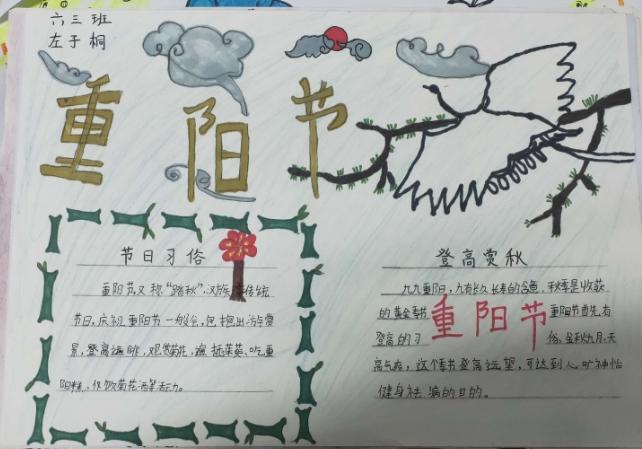 六三班
左于桐
重阳节
节日习俗
重阳节,又称"踏秋",汉族传统
节日,庆祝重阳节一般会,包括出游赏
景,登高远眺,观赏菊花,遍插茱萸、吃重
阳糕,饮菊花酒等活动。
登高赏秋
九九重阳,九有长久长寿的含意,秋季是收获
的黄金季节 重阳节首先有
重阳节
登高的习 俗,金秋九月,天
高气爽,这个季节登高远望,可达到心旷神怡
健身祛病的目的。